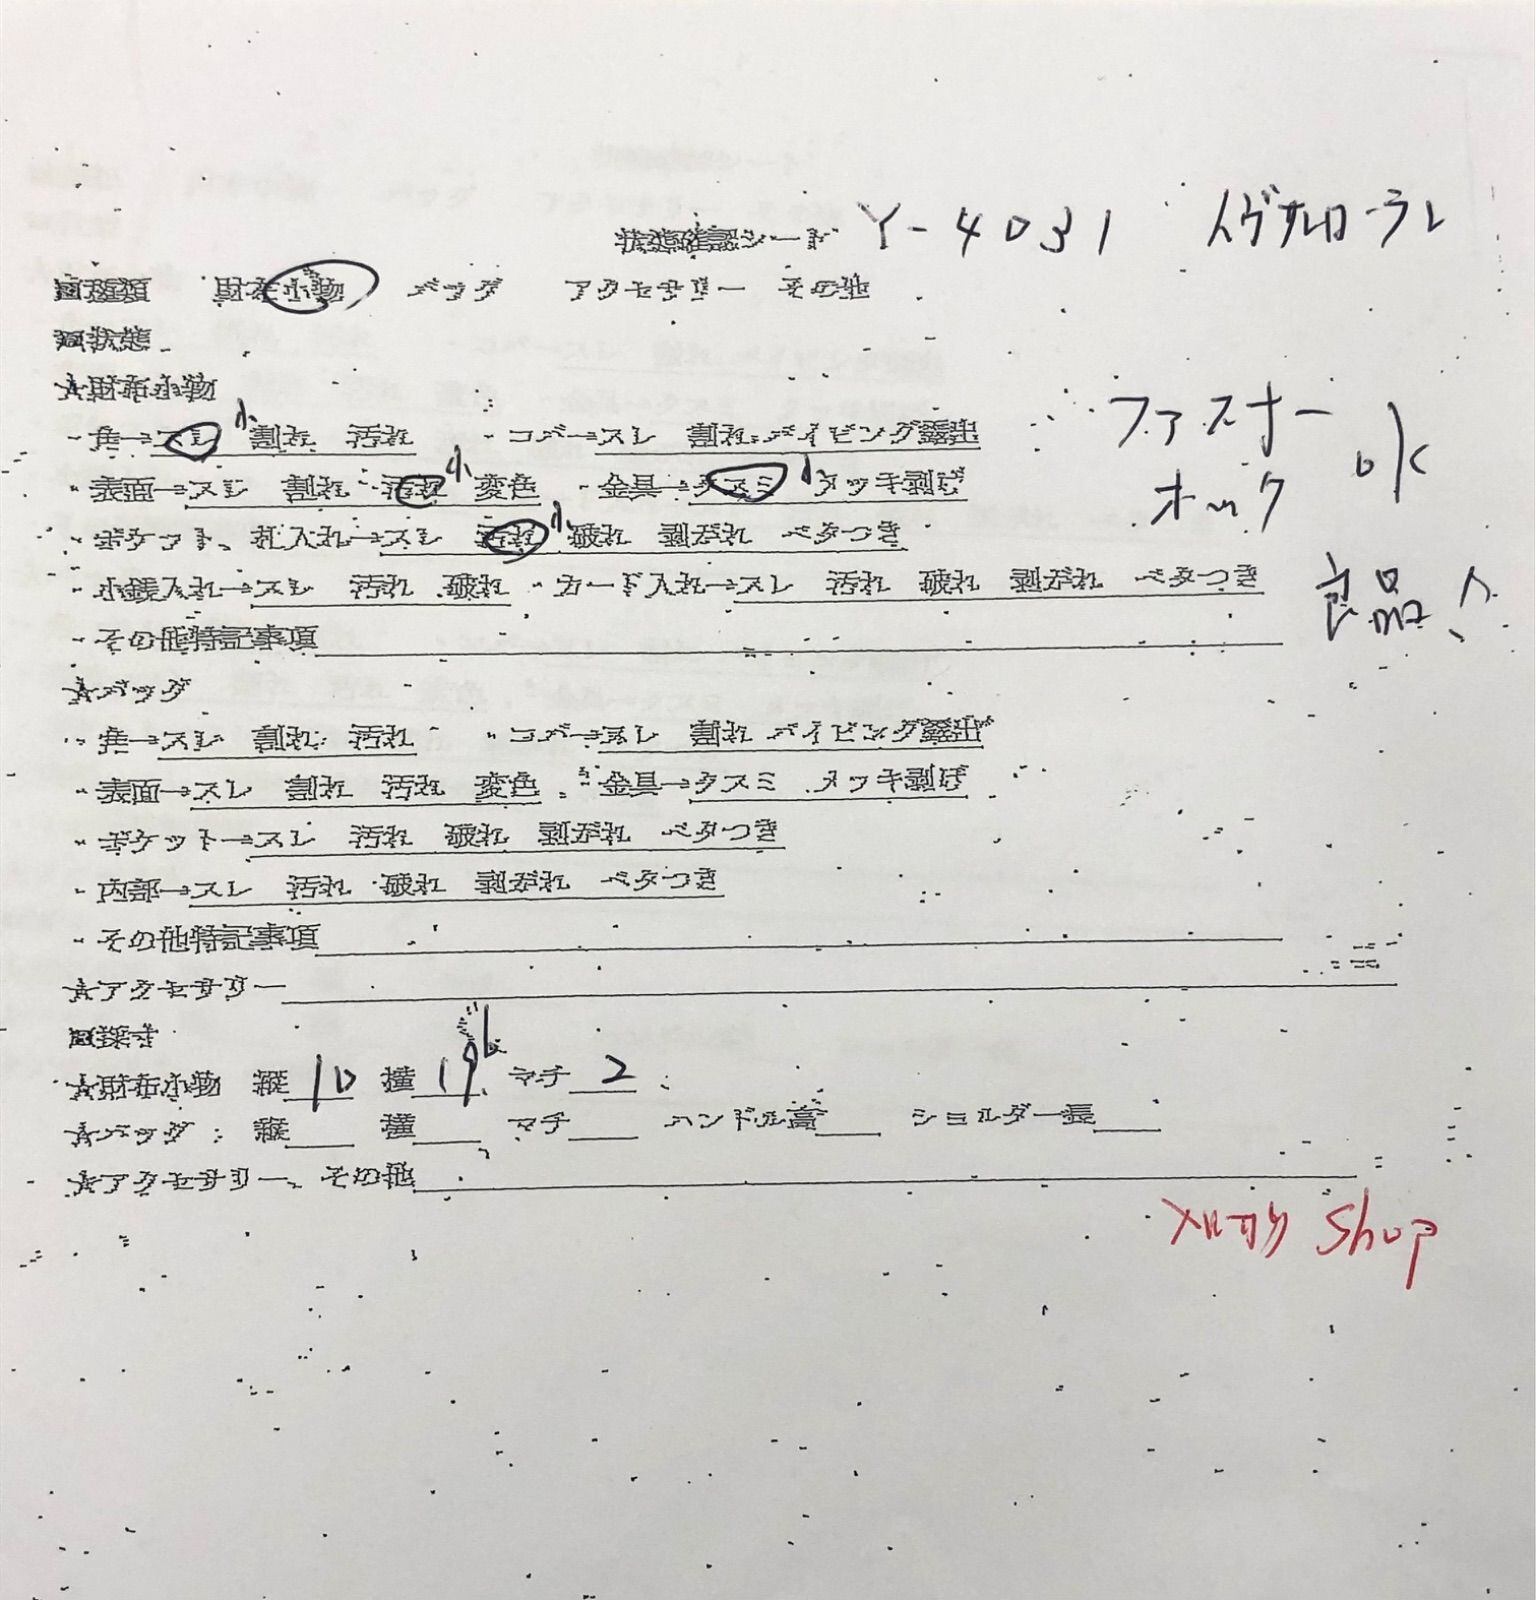 状態確認シート Y-4031 イヴサンローラン
■種類 財布小物 バッグ アクセサリー その他
■状態
★財布小物
・角→スレ 小 割れ 汚れ ・コバ→スレ 割れ パイピング露出
ファスナー
・表面→スレ 割れ 汚れ 小 変色 ・金具→クスミ 小 メッキ剥げ
ホック ok
・ポケット、札入れ→スレ 汚れ 小 破れ 剥がれ ベタつき
・小銭入れ→スレ 汚れ 破れ ・カード入れ→スレ 汚れ 破れ 剥がれ ベタつき
良品
・その他特記事項
★バッグ
・角→スレ 割れ 汚れ ・コバ→スレ 割れ パイピング露出
・表面→スレ 割れ 汚れ 変色 ・金具→クスミ メッキ剥げ
・ポケット→スレ 汚れ 破れ 剥がれ ベタつき
・内部→スレ 汚れ 破れ 剥がれ ベタつき
・その他特記事項
★アクセサリー
■採寸
★財布小物 縦 10 横 19 マチ 2
★バッグ 縦 横 マチ ハンドル高 ショルダー長
★アクセサリー、その他
Shop